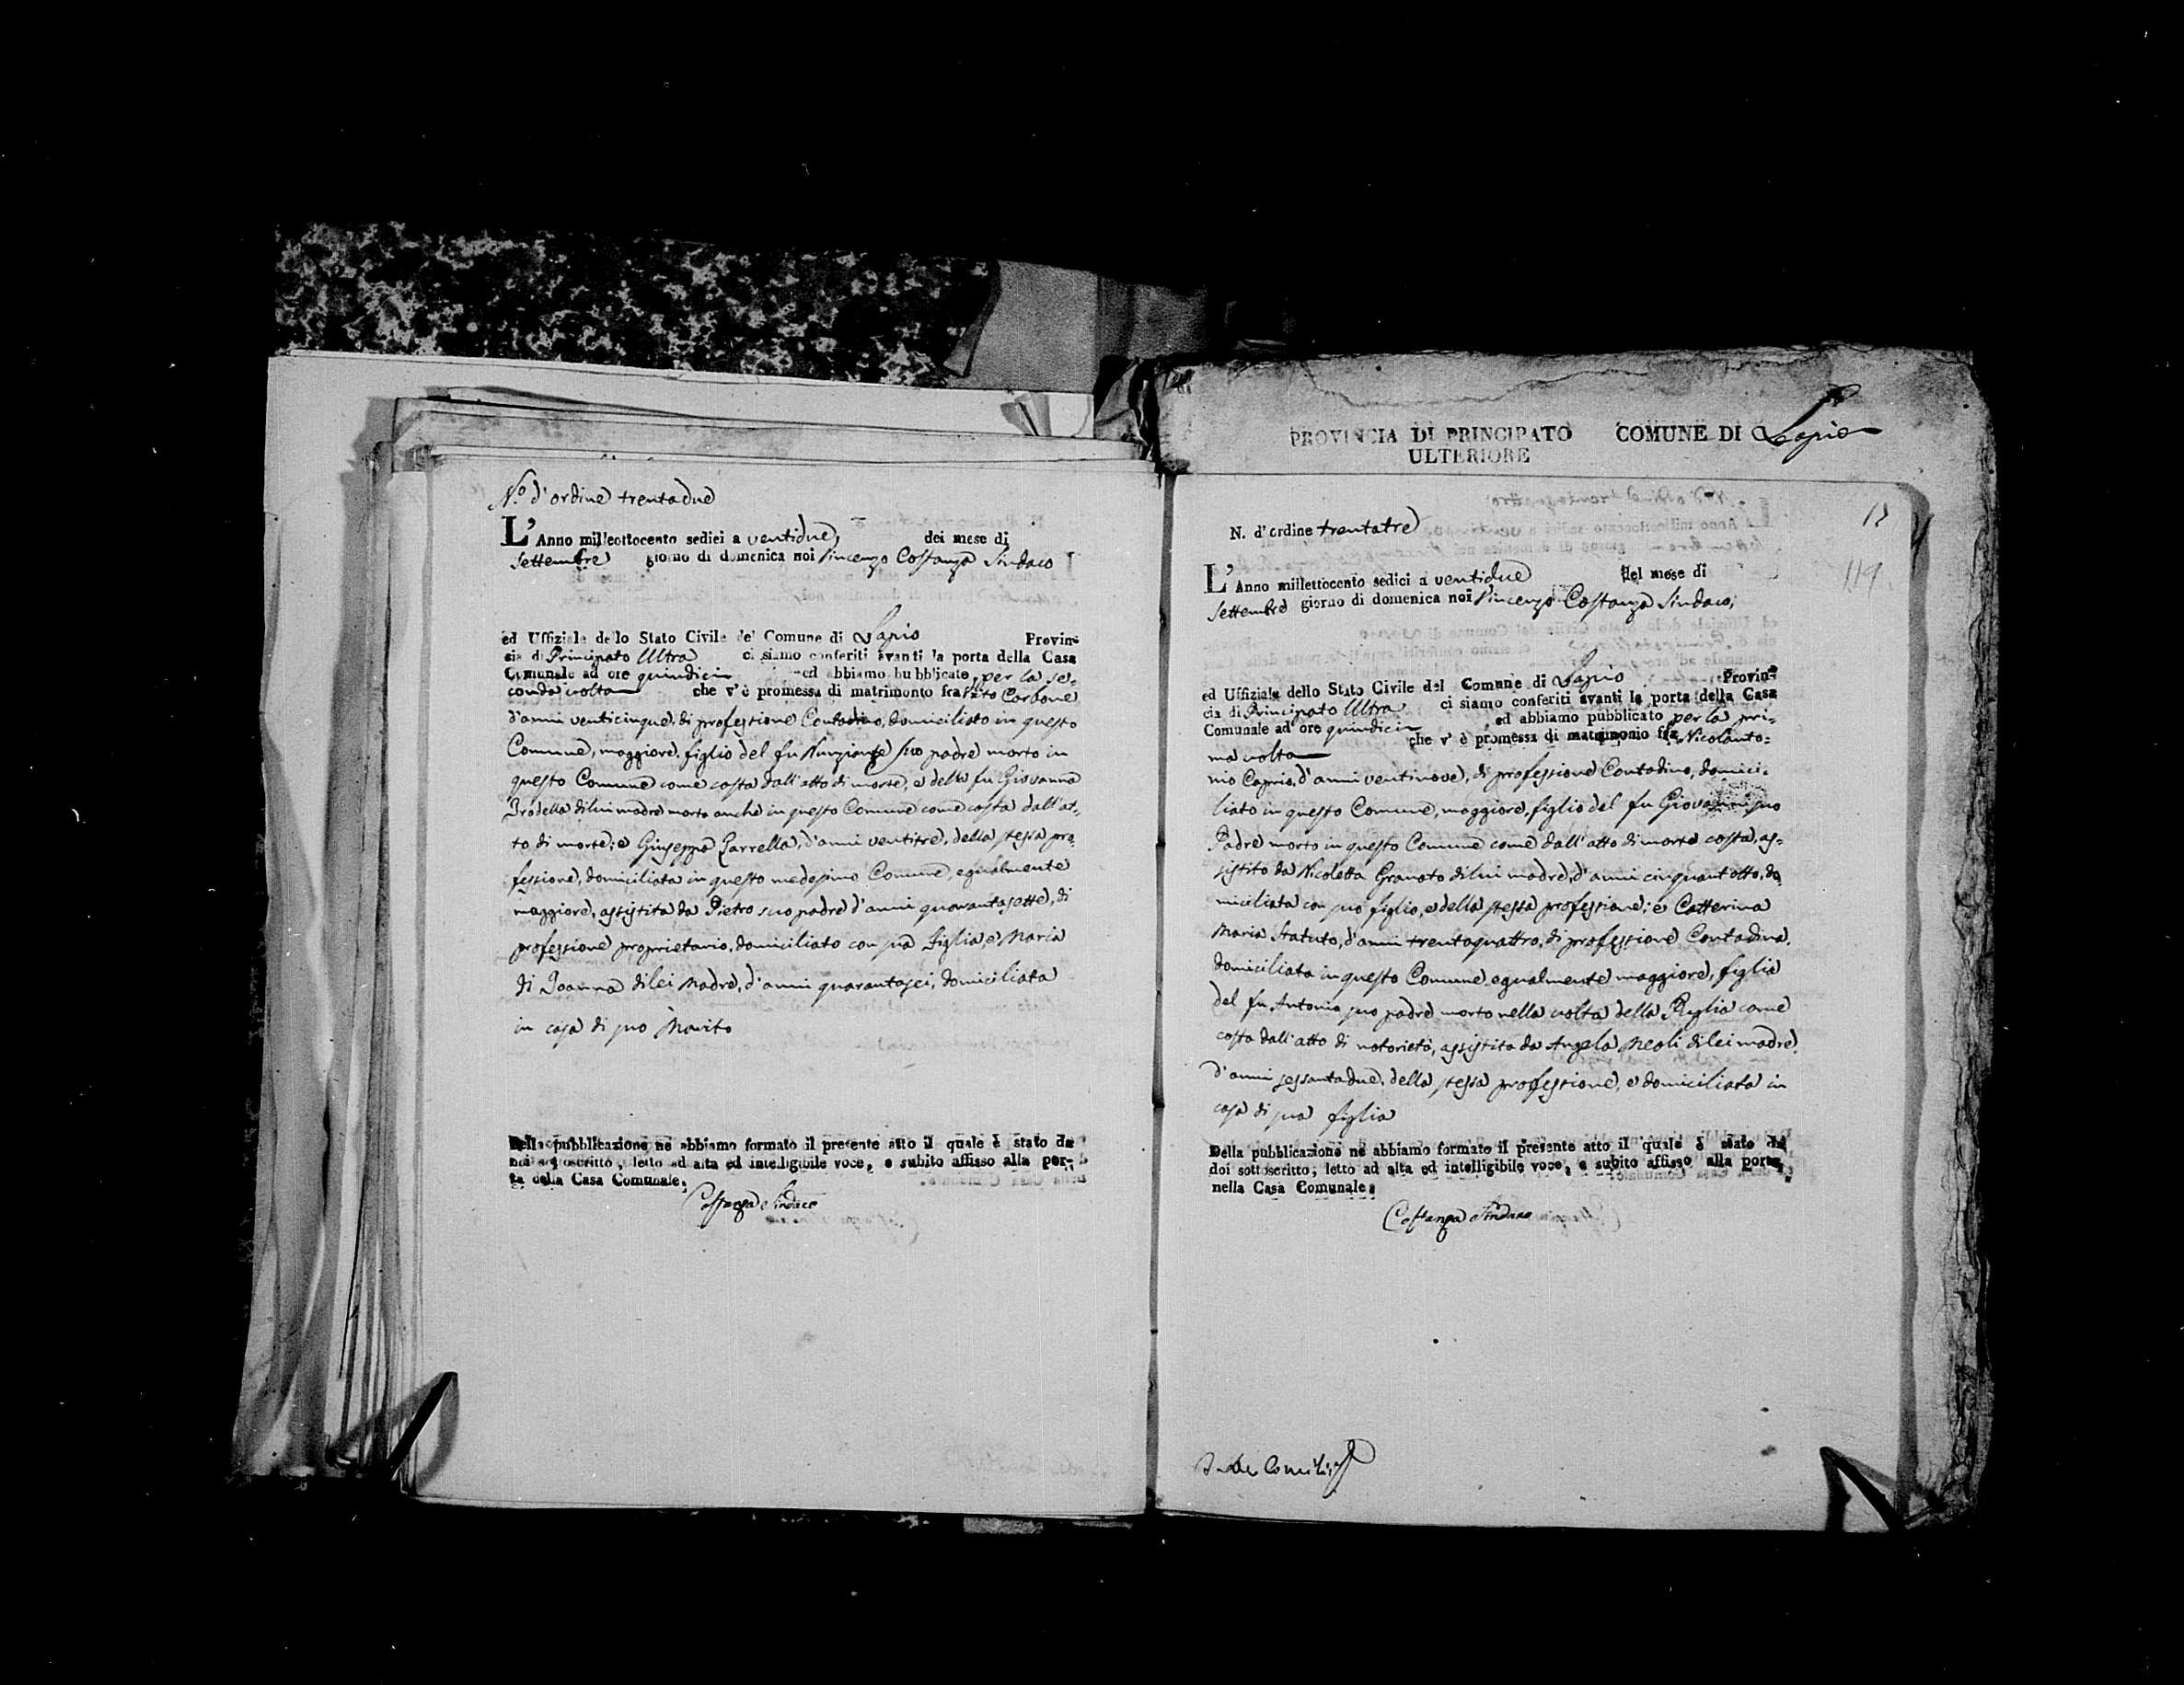 N.º d'ordine trentadue
L'Anno milleottocento sedici a ventidue, dei mese di
Settembre giorno di domenica noi Vincenzo Costanza Sindaco
ed Uffiziale dello Stato Civile del Comune di Lapio Provin-
cia di Principato Ultra ci siamo conferiti avanti la porta della Casa
Comunale ad ore quindici ed abbiamo bubblicato, per la se-
conda volta che v'è promessa di matrimonto fra Vito Carbone
d'anni venticinque, di professione Contadino, domiciliato in questo
Comune, maggiore, figlio del fu Nunziante suo padre morto in
questo Comune come costa dall'atto di morte, e della fu Giovanna
di lui madre morta anche in questo Comune come costa dall'at-
to di morte; e Giuseppa Zarrella, d'anni ventitre, della stessa pro-
fessione, domiciliata in questo medesimo Comune, egualmente
maggiore, assistita da Pietro suo padre d'anni quarantasette, di
professione proprietario, domiciliato con sua Figlia, e Maria
di Joanna di lei Madre, d'anni quarantasei, domiciliata
in casa di suo Marito
Della pubblicazione ne abbiamo formato il presente atto il quale è stato da
noi sottoscritto, letto ad alta ed intelligibile voce, e subito affisso alla por-
ta della Casa Comunale.
Costanza Sindaco
PROVINCIA DI PRINCIPATO COMUNE DI Lapio
ULTERIORE
119
N. d'ordine trentatre
L'Anno millettocento sedici a ventidue del mese di
Settembre giorno di domenica noi Vincenzo Costanza Sindaco,
ed Uffiziale dello Stato Civile del Comune di Lapio Provin-
cia di Principato Ultra ci siamo conferiti avanti la porta della Casa
Comunale ad ore quindici ed abbiamo pubblicato per la pri-
ma volta che v'è promessa di matrimonio fra Nicolanto-
nio Caprio, d'anni ventinove, di professione Contadino, domici-
liato in questo Comune, maggiore, figlio del fu Giovanni suo
Padre morto in questo Comune come dall'atto di morte costa, as-
sistito da Nicoletta Granato di lui madre, d'anni cinquantotto, do-
miciliata con suo figlio, e della stessa professione; e Catterina
Maria Statuto, d'anni trentaquattro, di professione Contadina,
domiciliata in questo Comune egualmente maggiore, figlia
del fu Antonio suo padre morto nella volta della Puglia come
costa dall'atto di notorietà, assistita da Angela Meoli di lei madre,
d'anni sessantadue, della stessa professione, e domiciliata in
casa di sua figlia
Della pubblicazione ne abbiamo formato il presente atto il quale è stato da
doi sottoscritto; letto ad alta ed intelligibile voce, e subito affisso alla porta
nella Casa Comunale.
Costanza Sindaco